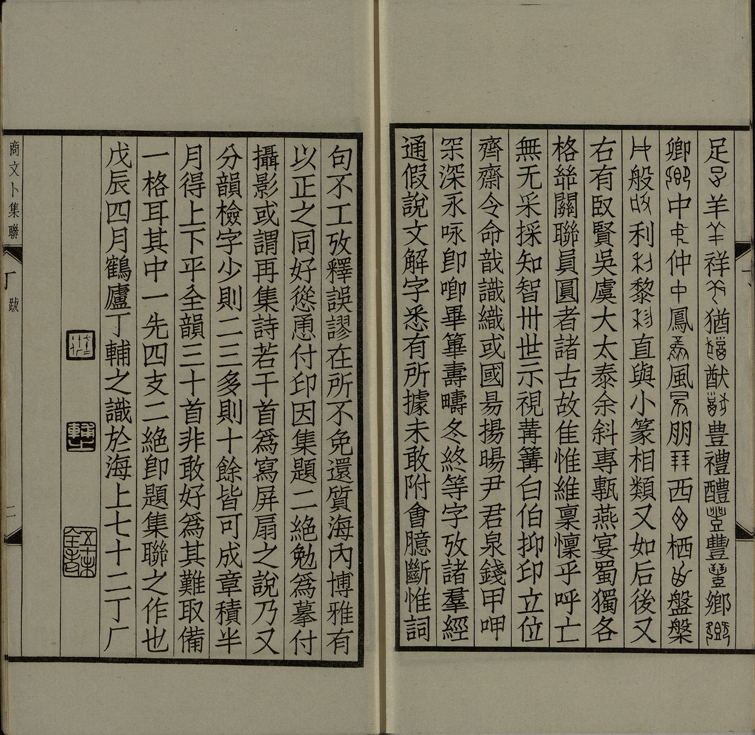 足羊祥猶猷豊禮醴豐鄉
卿中仲鳳風朋西栖盤槃
般利黎直與小篆相類又如后後又
右有臤賢吳虞大太泰余斜專甎燕宴蜀獨各
格𢇇關聯員圓者諸古故隹惟維稟懍乎呼亡
無无采採知智卅世示視冓篝白伯抑印立位
齊齋令命戠識織或國昜揚暘尹君泉錢甲呷
罙深永咏卽喞畢篳壽疇冬終等字攷諸羣經
通假說文解字悉有所據未敢附會臆斷惟詞
句不工攷釋誤謬在所不免還質海內博雅有
以正之同好慫恿付印因集題二絶勉爲摹付
攝影或謂再集詩若干首爲寫屏扇之說乃又
分韻檢字少則二三多則十餘皆可成章積半
月得上下平全韻三十首非敢好爲其難取備
一格耳其中一先四支二絶卽題集聯之作也
戊辰四月鶴廬丁輔之識於海上七十二丁厂
商文卜集聯
跋
二